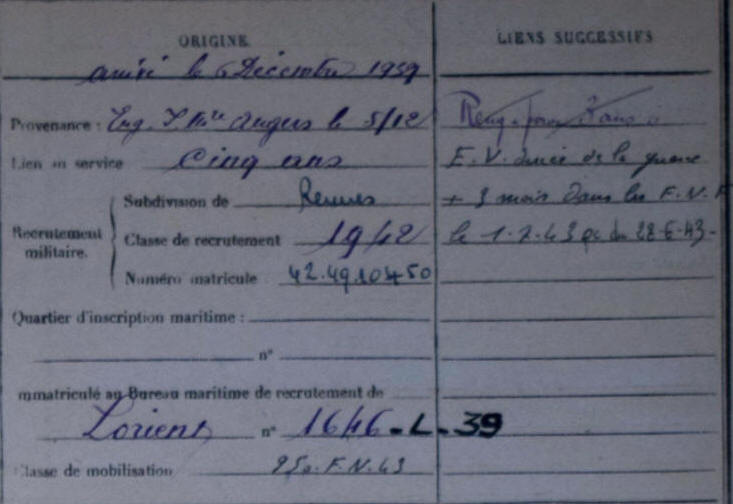 ORIGINE
arrivé le 6 Décembre 1939
Provenance : Eng. I. Mre Angers le 5/12
Lien au service cinq ans
Recrutement militaire.
Subdivision de Rennes
Classe de recrutement 1942
Numéro matricule 42.49.10450
Quartier d'inscription maritime :
n°
mmatriculé au Bureau maritime de recrutement de
Lorient n° 1646-L-39
Classe de mobilisation 950.F.N.43
LIENS SUCCESSIFS
pour 3 ans
E.V. durée de la guerre
+ 3 mois dans les F.N.F
le 1-7-43 du 28-6-43-